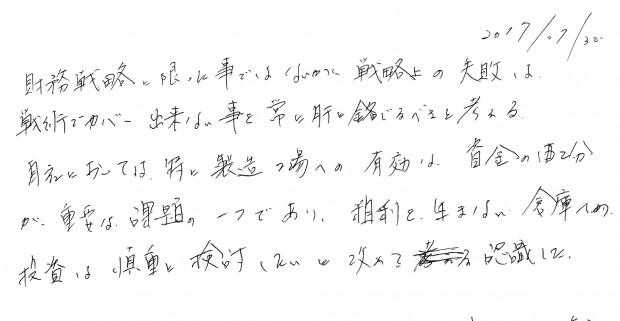 2017/07/30
財務戦略に限った事ではないが、戦略上の失敗は
戦術でカバー出来ない事を常に肝に銘じるべきと考える。
自社においては、特に製造工場への有効な資金の配分
が、重要な課題の一つであり、粗利を生まない倉庫への
投資は慎重に検討したいと改めて認識した。